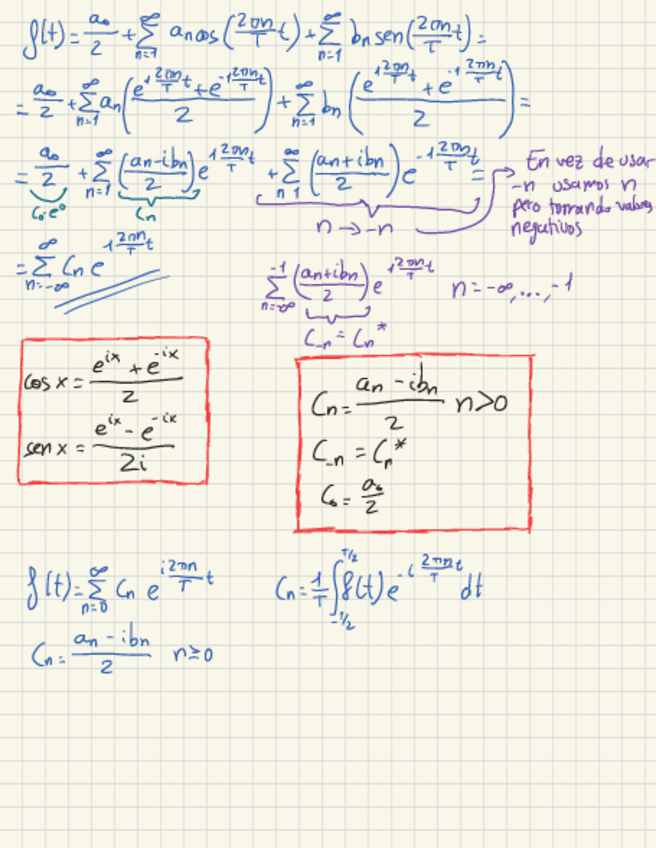 f(t) = a₀/2 + ∑_{n=1}^{∞} aₙ cos(2πn/T t) + ∑_{n=1}^{∞} bₙ sen(2πn/T t) =
= a₀/2 + ∑_{n=1}^{∞} aₙ ((e^{i 2πn/T t} + e^{-i 2πn/T t})/2) + ∑_{n=1}^{∞} bₙ ((e^{i 2πn/T t} + e^{-i 2πn/T t})/2) =
= a₀/2 + ∑_{n=1}^{∞} ((aₙ - ibₙ)/2) e^{i 2πn/T t} + ∑_{n=1}^{∞} ((aₙ + ibₙ)/2) e^{-i 2πn/T t} =
C₀·e⁰
Cₙ
n → -n
En vez de usar
-n usamos n
pero tomando valores
negativos
= ∑_{n=-∞}^{∞} Cₙ e^{i 2πn/T t}
∑_{n=-∞}^{-1} ((aₙ + ibₙ)/2) e^{i 2πn/T t} n = -∞, ..., -1
C₋ₙ = Cₙ*
cos x = (e^{ix} + e^{-ix})/2
sen x = (e^{ix} - e^{-ix})/2i
Cₙ = (aₙ - ibₙ)/2 n>0
C₋ₙ = Cₙ*
C₀ = a₀/2
f(t) = ∑_{n=0}^{∞} Cₙ e^{i 2πn/T t} Cₙ = 1/T ∫_{-T/2}^{T/2} f(t) e^{-i 2πn/T t} dt
Cₙ = (aₙ - ibₙ)/2 n≥0